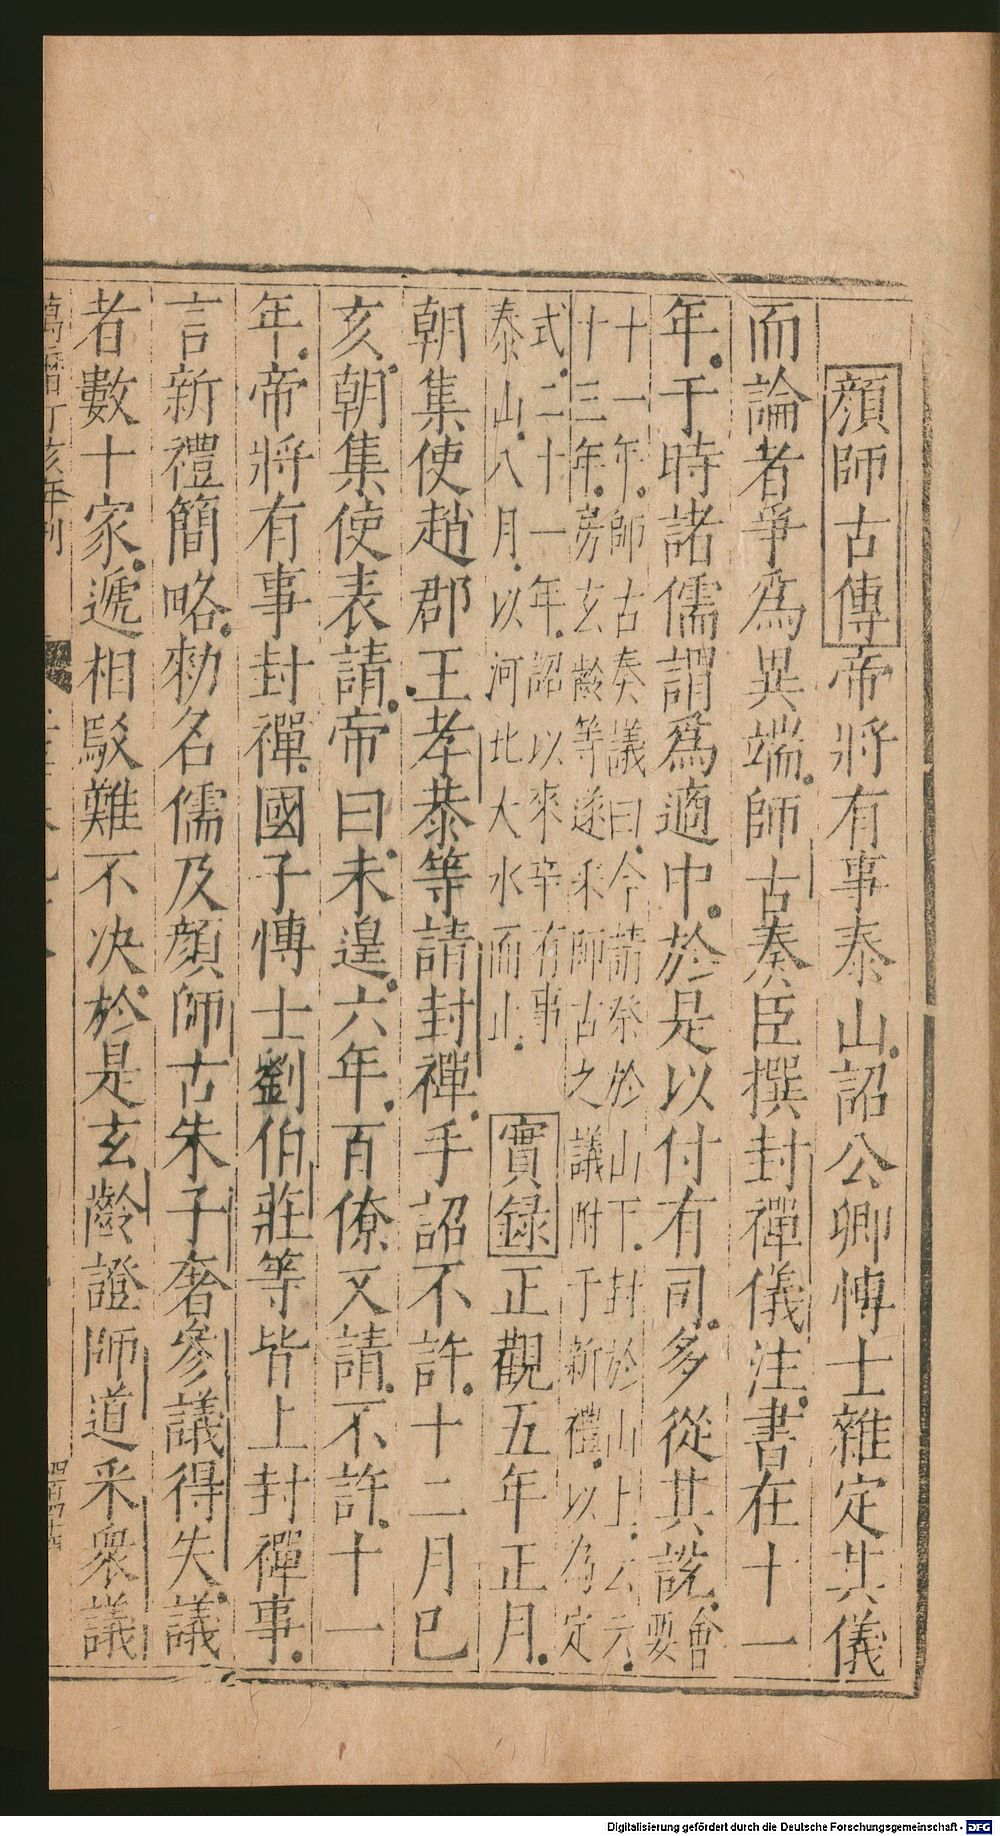 顔師古傳帝將有事泰山詔公卿愽士雜定其儀
而論者爭爲異端師古奏臣撰封禪儀注書在十一
年于時諸儒謂爲適中於是以付有司多從其說會要
十一年師古奏議曰今請祭於山下封於山上云云
十三年房玄齡等遂采師古之議附于新禮以為定
式二十一年詔以來辛有事
泰山八月以河北大水而止
實録正觀五年正月
朝集使趙郡王孝恭等請封禪手詔不許十二月巳
亥朝集使表請帝曰未遑六年百僚又請不許十一
年帝將有事封禪國子愽士劉伯莊等皆上封禪事
言新禮簡略勑名儒及顔師古朱子奢參議得失議
者數十家遞相駁難不决於是玄齡證師道采衆議
萬曆丁亥年刊
Digitalisierung gefördert durch die Deutsche Forschungsgemeinschaft - DFG